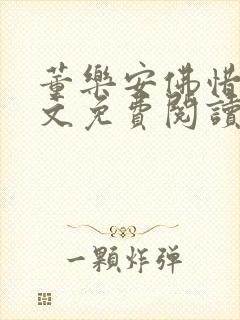 董樂安佛惜
文免費閱讀
一顆炸弹